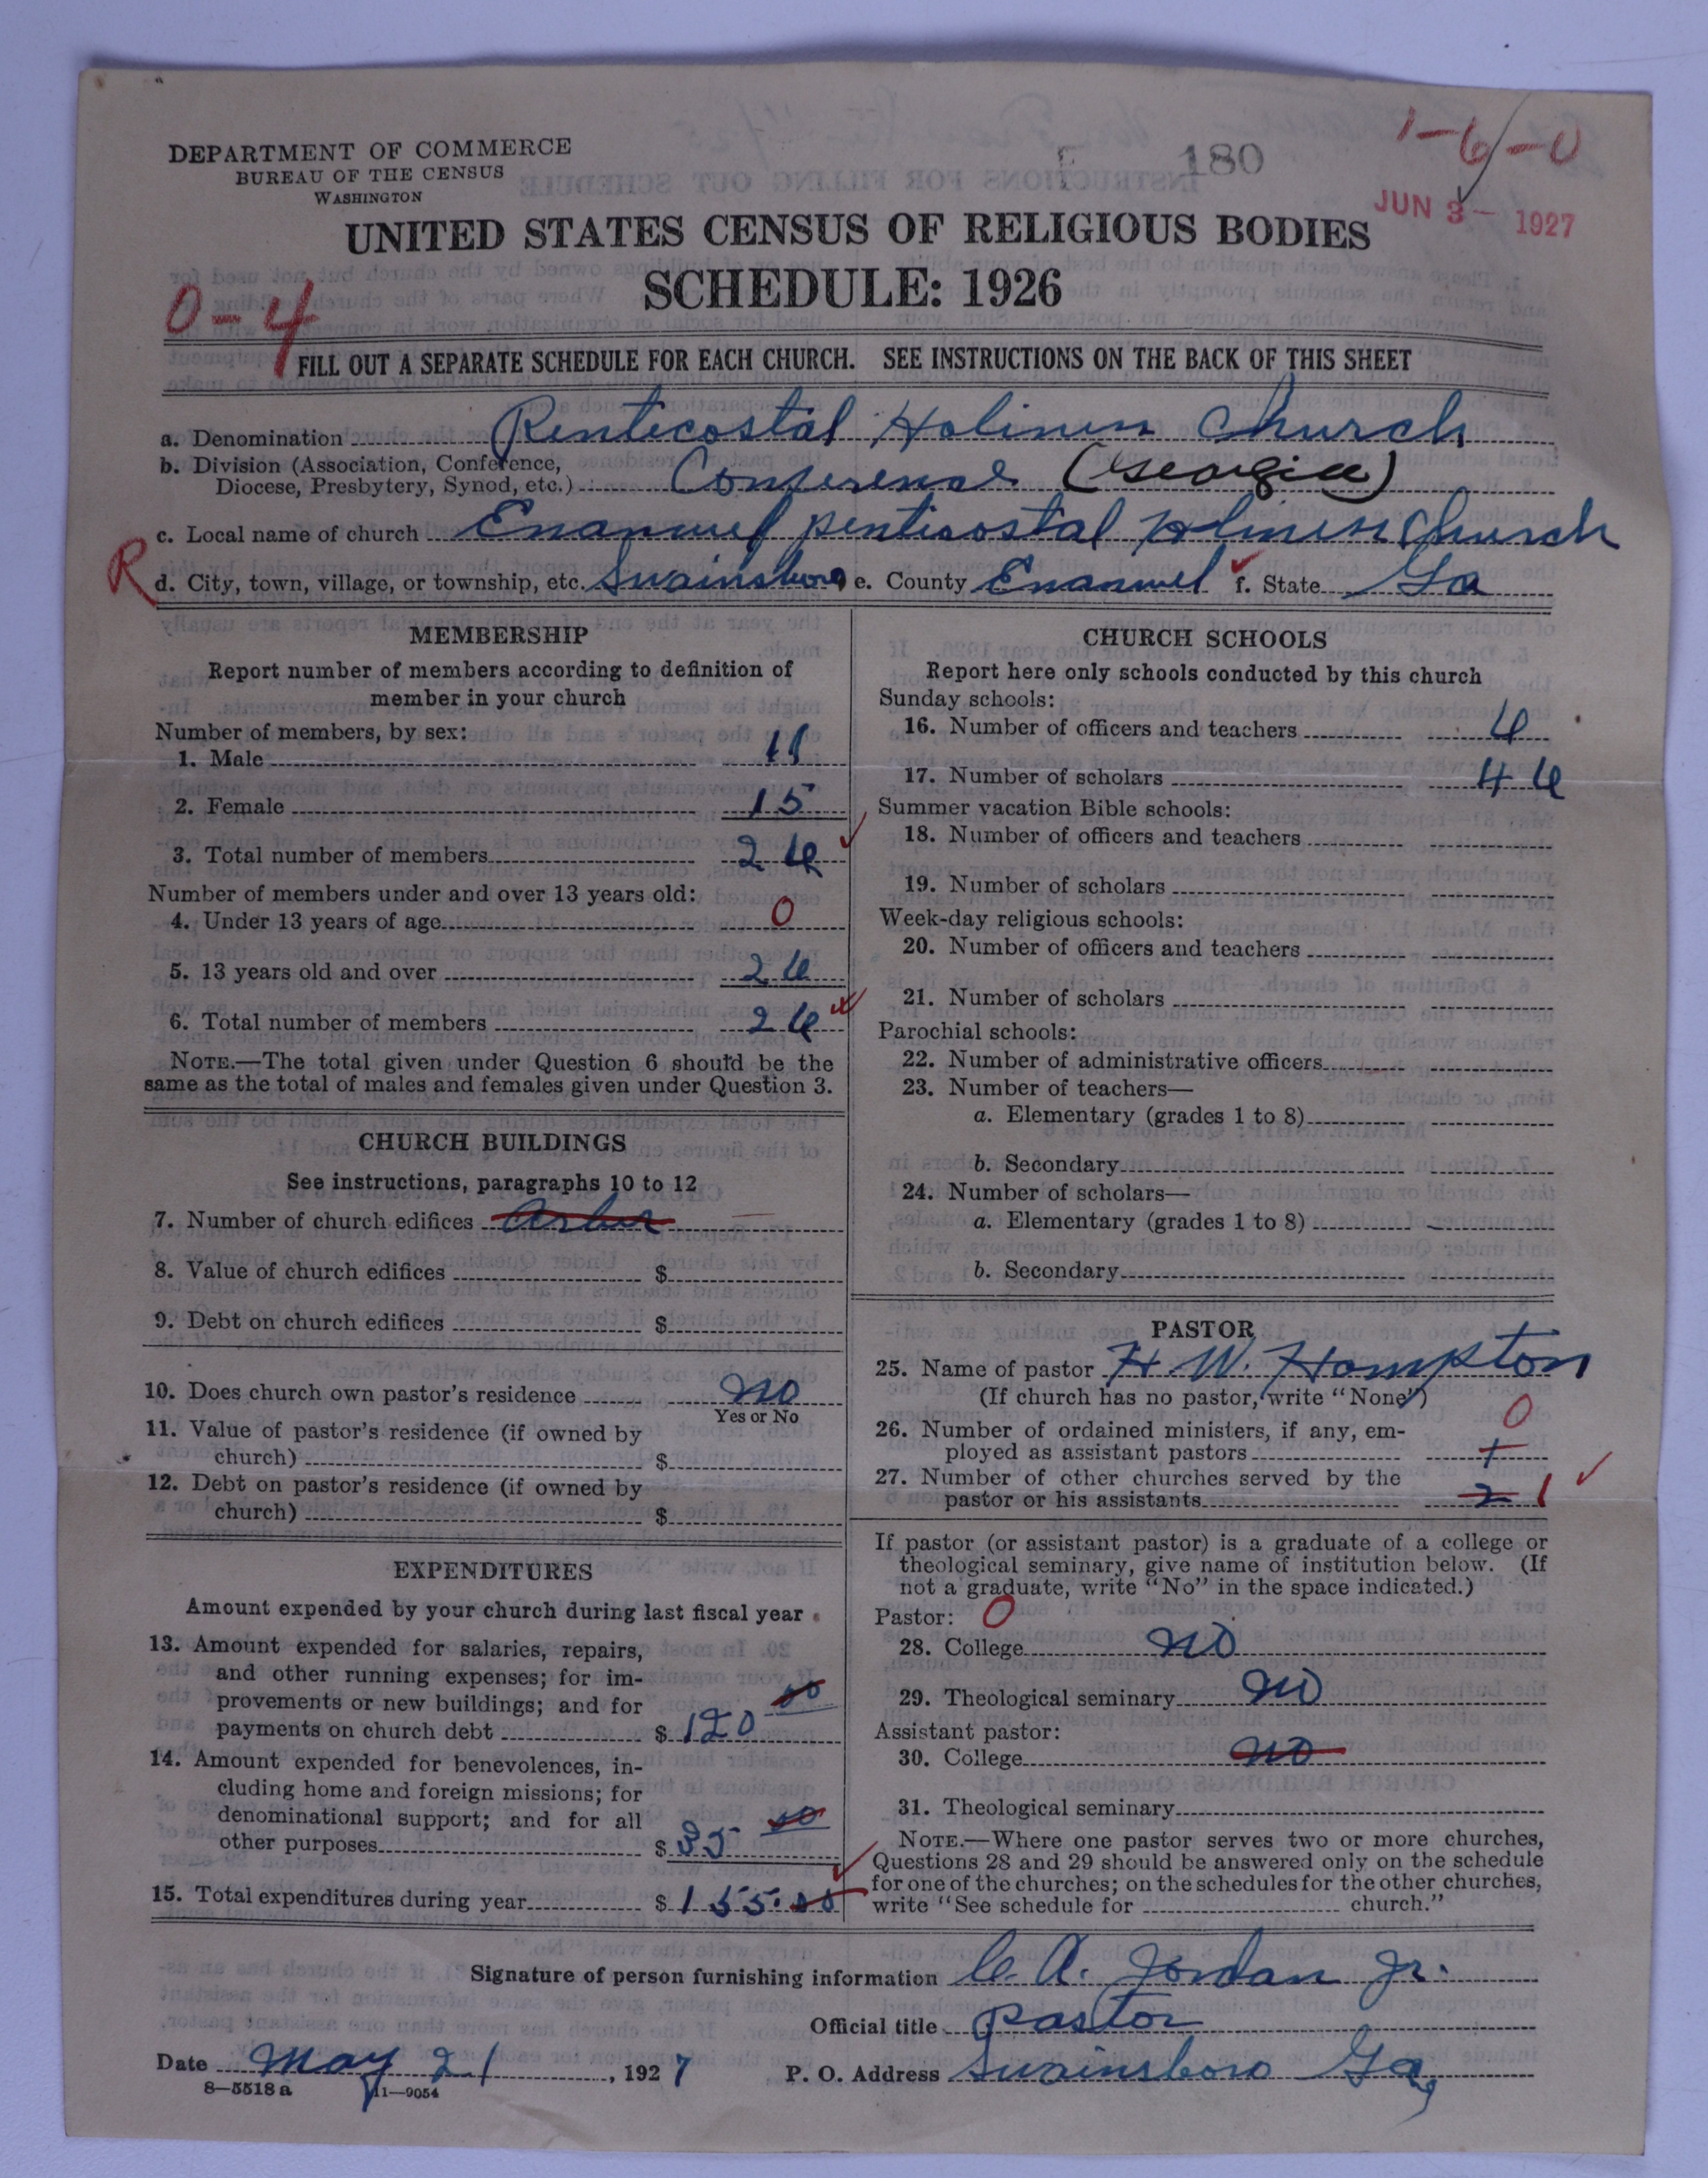 DEPARTMENT OF COMMERCE
BUREAU OF THE CENSUS
WASHINGTON
180
1-6-0
JUN 3 - 1927
UNITED STATES CENSUS OF RELIGIOUS BODIES
SCHEDULE: 1926
0-4
FILL OUT A SEPARATE SCHEDULE FOR EACH CHURCH. SEE INSTRUCTIONS ON THE BACK OF THIS SHEET
a. Denomination Pentecostal Holiness Church
b. Division (Association, Conference,
Diocese, Presbytery, Synod, etc.) Conference (Georgia)
c. Local name of church Emanuel penticostal Holiness Church
R
d. City, town, village, or township, etc. Swainsboro e. County Emanuel f. State Ga
MEMBERSHIP
Report number of members according to definition of
member in your church
Number of members, by sex:
1. Male 11
2. Female 15
3. Total number of members 26
Number of members under and over 13 years old:
4. Under 13 years of age 0
5. 13 years old and over 26
6. Total number of members 26
NOTE.—The total given under Question 6 should be the
same as the total of males and females given under Question 3.
CHURCH BUILDINGS
See instructions, paragraphs 10 to 12
7. Number of church edifices Arbor
8. Value of church edifices $
9. Debt on church edifices $
10. Does church own pastor's residence no
Yes or No
11. Value of pastor's residence (if owned by
church) $
12. Debt on pastor's residence (if owned by
church) $
EXPENDITURES
Amount expended by your church during last fiscal year
13. Amount expended for salaries, repairs,
and other running expenses; for im-
provements or new buildings; and for
payments on church debt $ 120 00
14. Amount expended for benevolences, in-
cluding home and foreign missions; for
denominational support; and for all
other purposes $ 35 00
15. Total expenditures during year $ 155.00
CHURCH SCHOOLS
Report here only schools conducted by this church
Sunday schools:
16. Number of officers and teachers 6
17. Number of scholars 46
Summer vacation Bible schools:
18. Number of officers and teachers
19. Number of scholars
Week-day religious schools:
20. Number of officers and teachers
21. Number of scholars
Parochial schools:
22. Number of administrative officers
23. Number of teachers—
a. Elementary (grades 1 to 8)
b. Secondary
24. Number of scholars—
a. Elementary (grades 1 to 8)
b. Secondary
PASTOR
25. Name of pastor H. W. Hampton
(If church has no pastor, write "None")
26. Number of ordained ministers, if any, em-
ployed as assistant pastors 1 0
27. Number of other churches served by the
pastor or his assistants 2 1
If pastor (or assistant pastor) is a graduate of a college or
theological seminary, give name of institution below. (If
not a graduate, write "No" in the space indicated.)
Pastor: 0
28. College no
29. Theological seminary no
Assistant pastor:
30. College no
31. Theological seminary
NOTE.—Where one pastor serves two or more churches,
Questions 28 and 29 should be answered only on the schedule
for one of the churches; on the schedules for the other churches,
write "See schedule for church."
Signature of person furnishing information C. A. Jordan Jr.
Official title pastor
Date May 21, 1927 P. O. Address Swainsboro Ga,
8—5518 a 11—9054